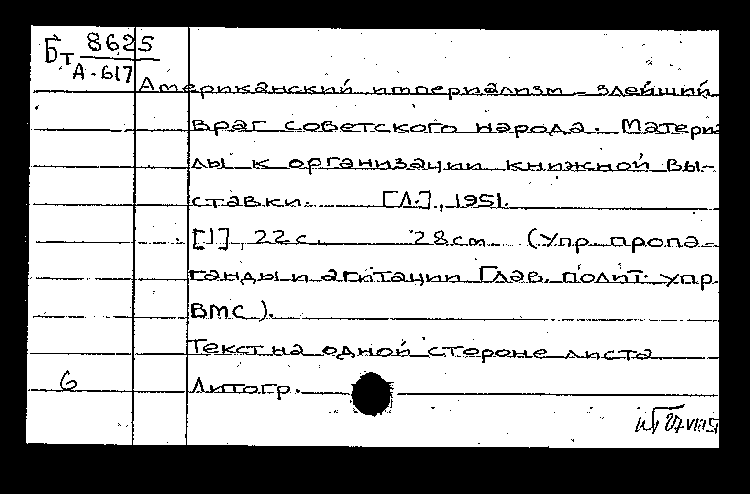 Бт 8625
А-617
Американский империализм - злейший
враг советского народа. Матери
лы к организации книжной вы-
ставки. [Л.], 1951.
[1], 22 с. 28 cm (Упр. пропа-
ганды и агитации Глав. полит. упр.
ВМС).
Текст на одной стороне листа
6 Литогр.